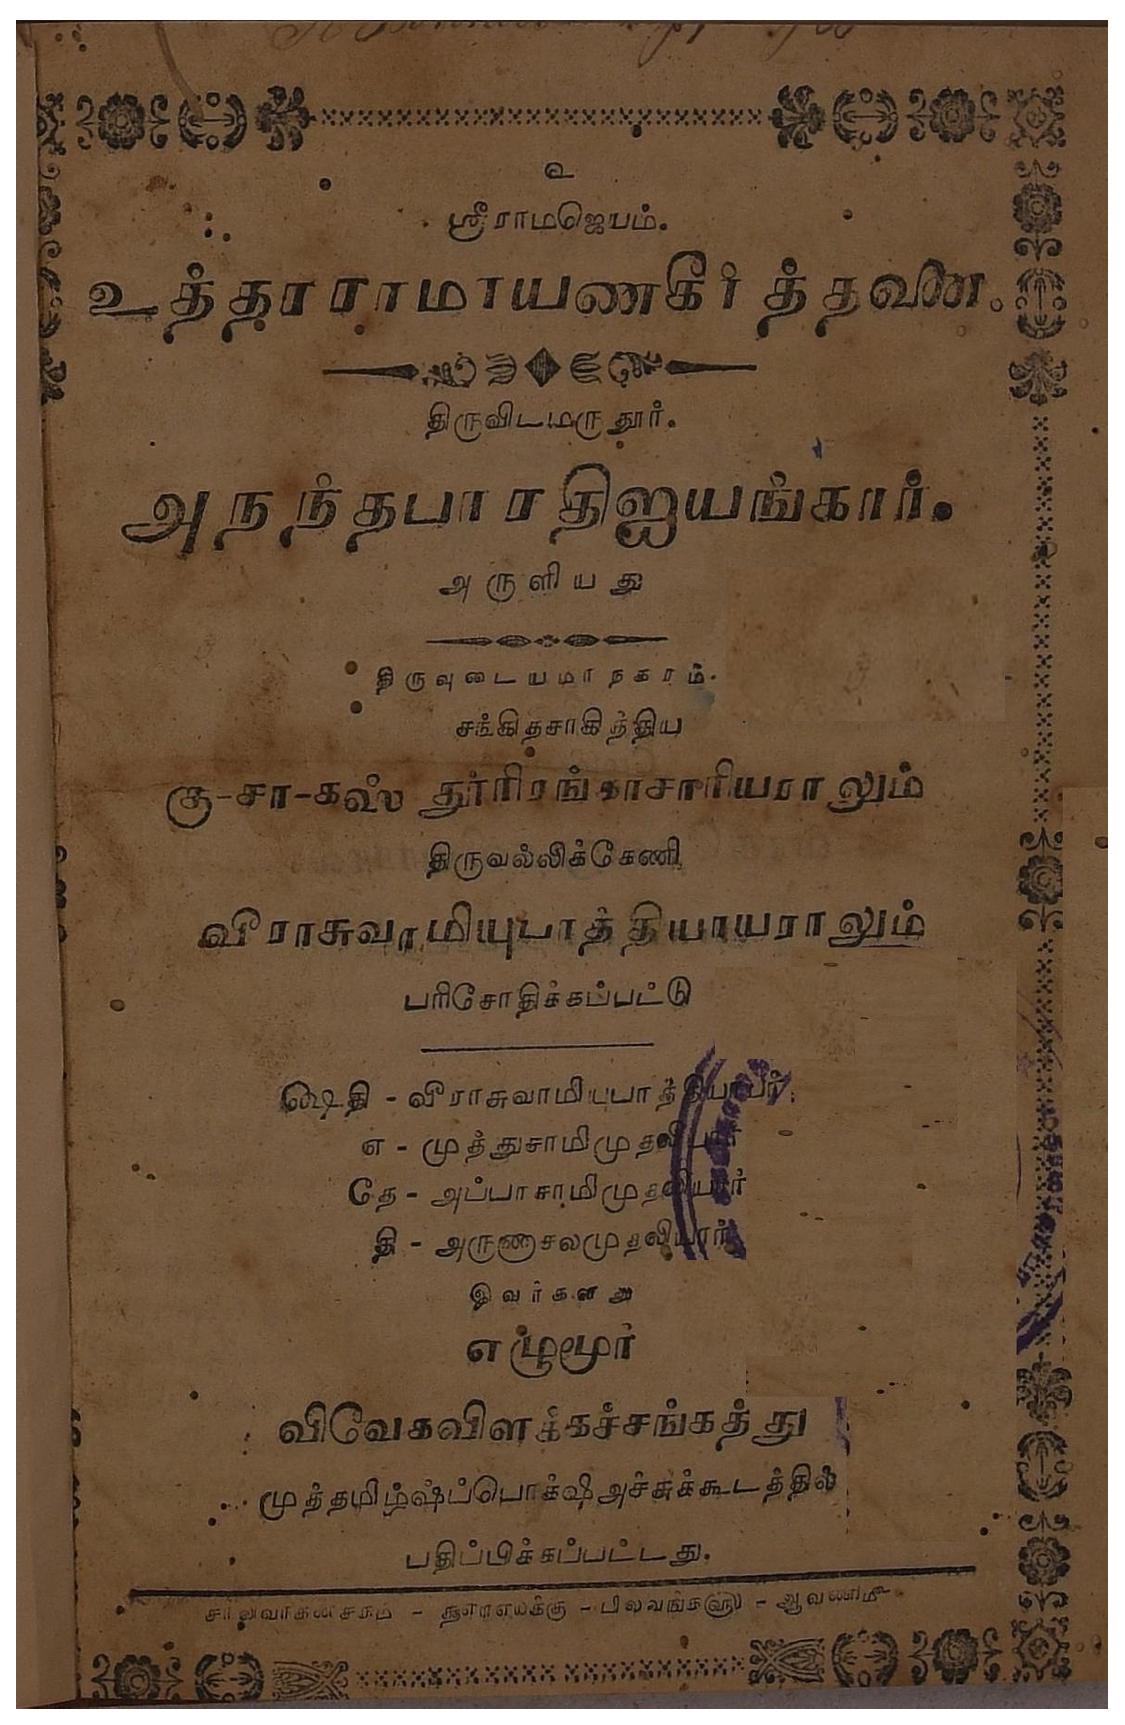 உ
ஸ்ரீராமஜெயம்.
உத்தரராமாயணகீர்த்தனை.
திருவிடமருதூர்.
அநந்தபாரதிஐயங்கார்.
அருளியது
திருவுடையமாநகரம்.
சங்கிதசாகித்திய
திருவல்லிக்கேணி
வீராசுவாமியுபாத்தியாயராலும்
பரிசோதிக்கப்பட்டு
வீராசுவாமியுபாத்தியாயர்.
எ - முத்துசாமிமுதலியார்
தே - அப்பாசாமிமுதலியார்
தி - அருணாசலமுதலியார்
இவர்களது
எழுமூர்
விவேகவிளக்கச்சங்கத்து
முத்தமிழ் அச்சுக்கூடத்தில்
பதிப்பிக்கப்பட்டது.
சாலிவாகனசகம் - ஆவணி௴